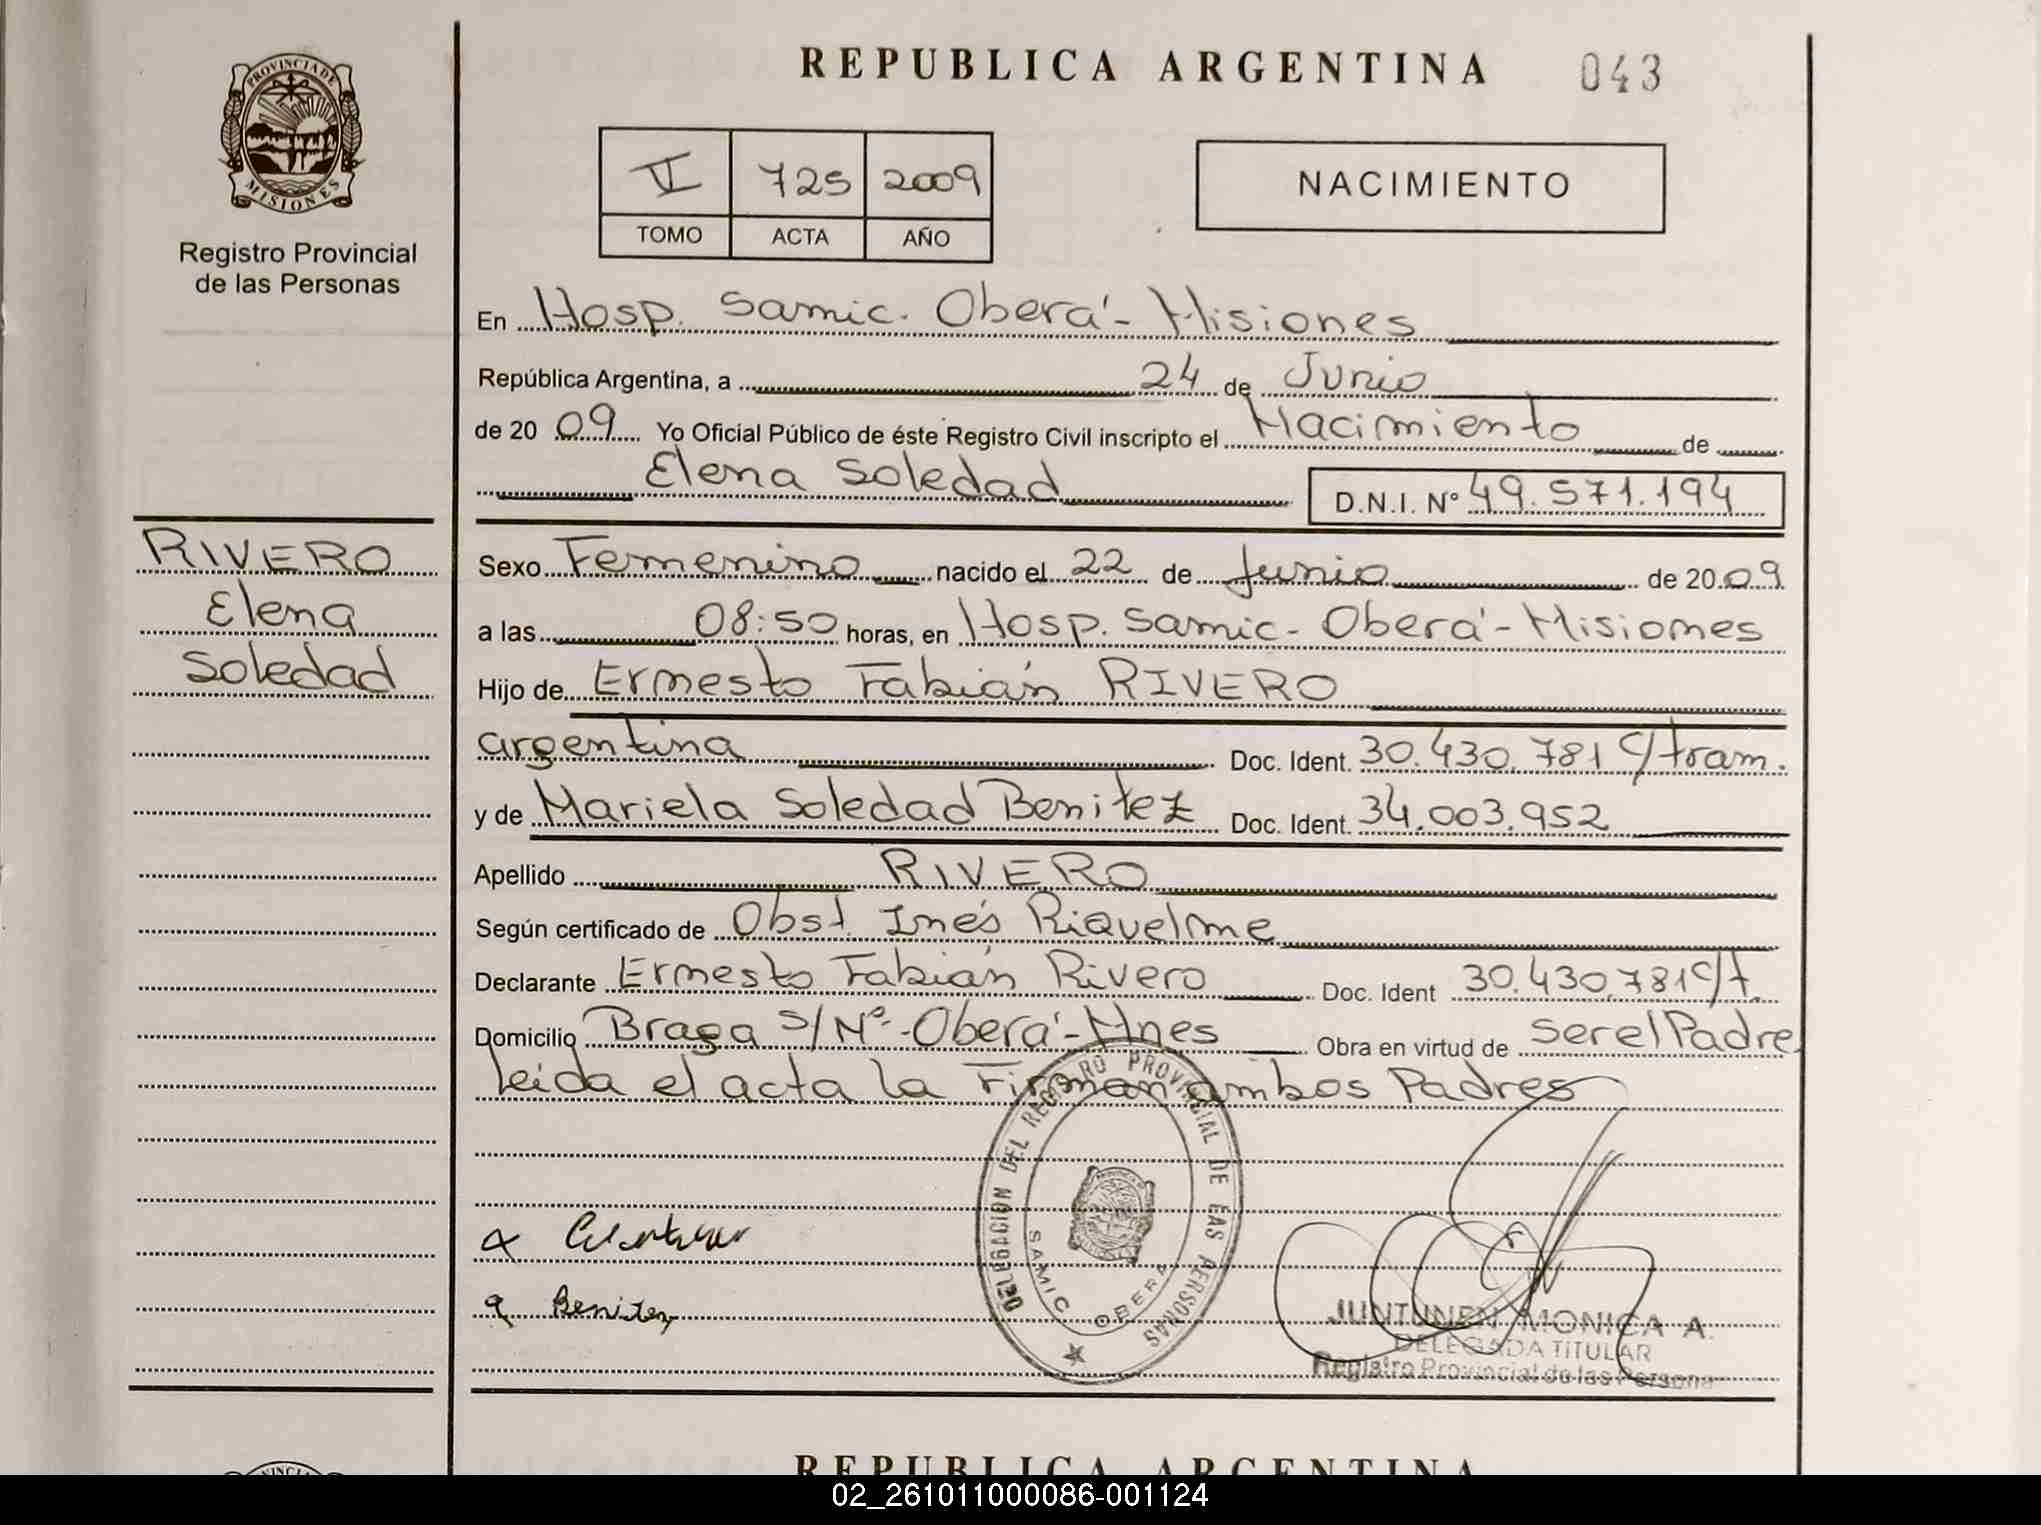 REPUBLICA ARGENTINA 043
PROVINCIA DE MISIONES
Registro Provincial
de las Personas
VI 725 2009
TOMO ACTA AÑO
NACIMIENTO
En Hosp. Samic. Oberá - Misiones
República Argentina, a 24 de Junio
de 20 09 Yo Oficial Público de éste Registro Civil inscripto el Nacimiento de
Elena Soledad D.N.I. Nº 49.571.194
RIVERO
Elena
Soledad
Sexo Femenino nacido el 22 de Junio de 20 09
a las 08:50 horas, en Hosp. Samic - Oberá - Misiones
Hijo de Ernesto Fabián RIVERO
argentina Doc. Ident. 30.430.781 c/tram.
y de Mariela Soledad Benitez Doc. Ident. 34.003.952
Apellido RIVERO
Según certificado de Obst. Inés Riquelme
Declarante Ernesto Fabián Rivero Doc. Ident 30.430.781 c/t.
Domicilio Braga s/Nº - Oberá - Mnes Obra en virtud de ser el Padre
leida el acta la Firman ambos Padres
DELEGACION DEL REGISTRO PROVINCIAL DE LAS PERSONAS
SAMIC OBERA
Benitez
JUNTUNEN MONICA A.
DELEGADA TITULAR
Registro Provincial de las Persona
REPUBLICA ARGENTINA
02_261011000086-001124